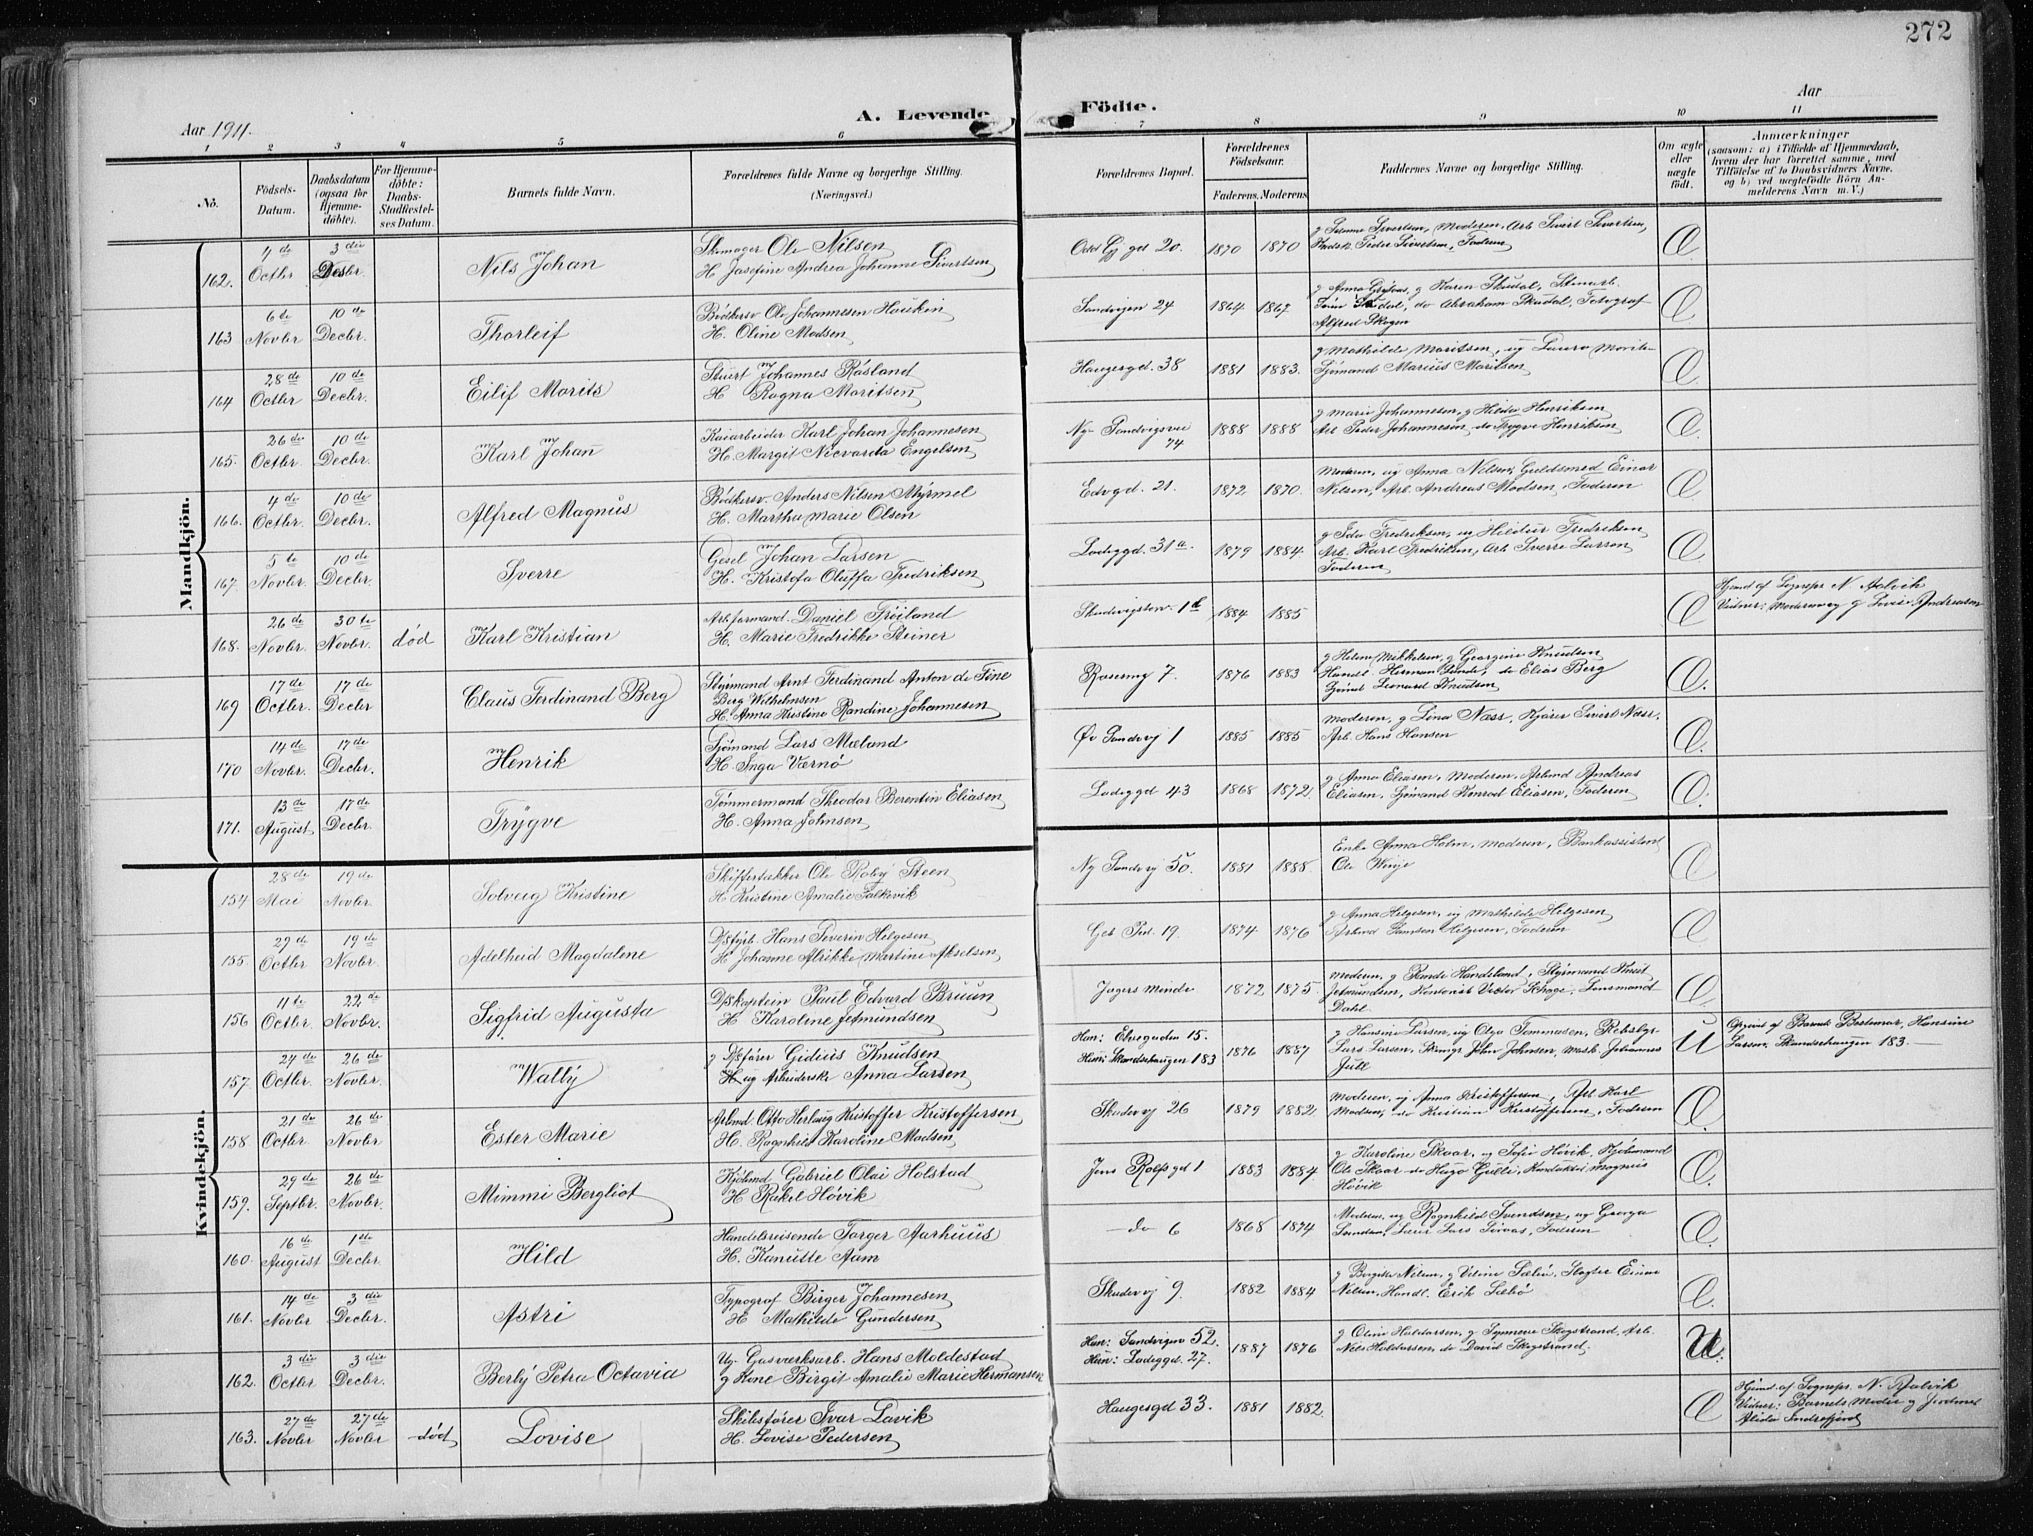 272
Aar 1911.
A. Levende
Födte.
Aar
1 2 3 4 5 6 7 8 9 10 11
No.
Födsels-Datum.
Daabsdatum (ogsaa for Hjemme-döbte).
For Hjemme-döbte: Daabs-Stadfæstel-ses Datum.
Barnets fulde Navn.
Forældrenes fulde Navne og borgerlige Stilling. (Næringsvei.)
Forældrenes Bopæl.
Forældrenes Födselsaar.
Faderens. Moderens
Faddernes Navne og borgerlige Stilling.
Om ægte eller uægte födt.
Anmærkninger
(saasom: a) i Tilfælde af Hjemmedaab, hvem der har forrettet samme, med Tilföielse af to Daabsvidners Navne, og b) ved uægtefödte Börn An-melderens Navn m. V.)
Mandkjön.
162. 4de Octbr 3die Decbr. Nils Johan
Skomager Ole Nilsen
H. Josefine Andrea Johanne Sivertsen
1870 1870
163 6te Novbr 10de Decbr. Thorleif
H. Oline Madsen
Sandvigen 24 1864 1867
Alfred Skogen
164 28de Octbr 10de Decbr. Eilif Morits
Stuert Johannes Røsland
H Ragna Moritsen
Haugesgd. 38 1881 1883.
Sjømand Marius Moritsen
165. 26de Octbr. 10de Decbr. Karl Johan
Kaiarbeider Karl Johan Johannesen
H. Margit Nicvarda Engelsen
Ny Sandvigsvei 74 1888 1888
g Marie Johannesen, g Hilda Henriksen
Arb. Peder Johannesen, do Trygve Henriksen
166. 4de Octbr. 10de Decbr. Alfred Magnus
Bødkersv. Anders Nilsen Myrmel
H. Martha Marie Olsen
Edvgd. 21. 1872 1870.
Moderen, ug Anna Nilsen, Guldsmed Einar
Nilsen, Arb. Andreas Madsen, Faderen
167. 5te Novbr. 10de Decbr. Sverre
Gesel Johan Larsen
H. Kristofa Oluffa Fredriksen
Ladeggd. 31a. 1879 1884
g Ida Fredriksen, ug Hildur Fredriksen
Arb. Karl Fredriksen, Arb Sverre Larsen,
Faderen
168. 26de Novbr. 30te Novbr. død Karl Kristian
Arb.formand. Daniel Frøiland
H. Marie Fredrikke Steiner
1884 1885
Hjmd af Sognepr N. Aalvik
169 17de Octbr. 17de Decbr Claus Ferdinand Berg
Styrmand Arnt Ferdinand Anton de Fine
Berg Wilhelmsen
H. Anna Kristine Randine Johannesen
Rosesmg 7. 1876 1883
g Helene Mikkelsen, g Georgine Knudsen
Handl. Herman Sande, do Elias Berg
Sjømd Leonard Knudsen
170 14de Novbr. 17de Decbr. Henrik
Sjømand Lars Mæland
H. Inga Værnø
Øv Sandvvj 1 1885 1885
Moderen, g Lina Næss, Kjører Sivert Næss,
Arb. Hans Hansen
171. 13de August 17de Decbr. Trygve
Tømmermand Theodor Berentin Eliasen
H. Anna Johnsen
Ladeggd 43 1868 1872
g Anna Eliasen, Moderen, Arbmd Andreas
Eliasen, Sjømand Konrad Eliasen, Faderen
Kvindekjön.
154 28de Mai 19de Novbr. Solveig Kristine
Skiffertækker Ole Roby Steen
H Kristine Amalie Falkevik
Ny Sandvvj 50. 1881 1888
Enke Anna Holm, Moderen, Bankassistent
Ole Winje
155. 29de Octbr 19de Novbr. Adelheid Magdalene
Hans Severin Helgesen
H Johanne Alrikke Martine Akselsen
19 1874 1876
g Anna Helgesen, ug Mathilde Helgesen
Arbmd Samson Helgesen, Faderen
156 11te Octbr. 22de Novbr. Sigfrid Augusta
Dpskaptein Paul Edvard Bruun
H Karoline Jetmundsen
Jægers Minde 1872 1875.
Moderen, g Rande Handeland, Styrmand Knut
Jetmundsen, Kontorist Victor Schage, Lensmand
Dahl
157. 24de Octbr. 26de Novbr. Wally
g Dpsfører Gidius Knudsen
H ug Arbeiderske Anna Larsen
Han: Elvegaden 15.
Hun: Skandsehaugen 183 1876 1887
g Hansine Larsen, ug Olga Tommasen, Rebslgr.
Lars Larsen, Skomgr John Johnsen, Mask. Johannes
Juell
U Opgivet af Barnets Bestemor, Hansine
Larsen, Skandsehaugen 183.
158 21de Octbr. 26de Novbr Ester Marie
Arbmd. Otto Herlaug Kristoffer Kristoffersen
H. Ragnhild Karoline Madsen
Skudevvj 26 1879 1882
Moderen, ug Anna Kristoffersen, Arb. Karl
Madsen, do Kristian Kristoffersen, Faderen
159. 29de Septbr. 26de Novbr. Mimmi Bergliot
Kjøbmd Gabriel Olai Holstad
H Rakel Høvik
Jens Rolfsgd 1 1883 1884
g Karoline Skaar, ug Sofie Høvik, Kjøbmand
Ole Skaar do Hugo Gullie, Konduktør Magnus
Høvik
160. 16de August 1ste Decbr. Hild
Handelsreisende Torger Aarhuus
H. Kanutte Aam
— do 6 1868 1874
Moderen, ug Ragnhild Svendsen, ug Georga
161. 14de Novbr 3die Decbr. Astri
Typograf Birger Johannesen
H Mathilde Gundersen
Skudevvj 9. 1882 1884
g Bergitte Nilsen, g Veline Sæbø, Slagter Einar
Nilsen, Handl. Erik Sæbø
162. 3die Octbr 3die Decbr. Berly Petra Octavia
Ug. Gasværksarb. Hans Moldestad
g Kone Birgit Amalie Marie Hermansen
Han: Sandvigen 52.
Hun: Ladeggd. 27. 1887 1876
g Oline Haldorsen, g Synneve Skogstrand, Arb.
Nils Haldorsen, do David Skogstrand.
163. 27de Novbr 27de Novbr død Lovise
Skibsfører Ivar Lavik
H. Lovise Pedersen
Haugesgd 33. 1881 1882.
Hjmd af Sognepr. N. Aalvik
Vidner: Barnets Moder g Jordmor